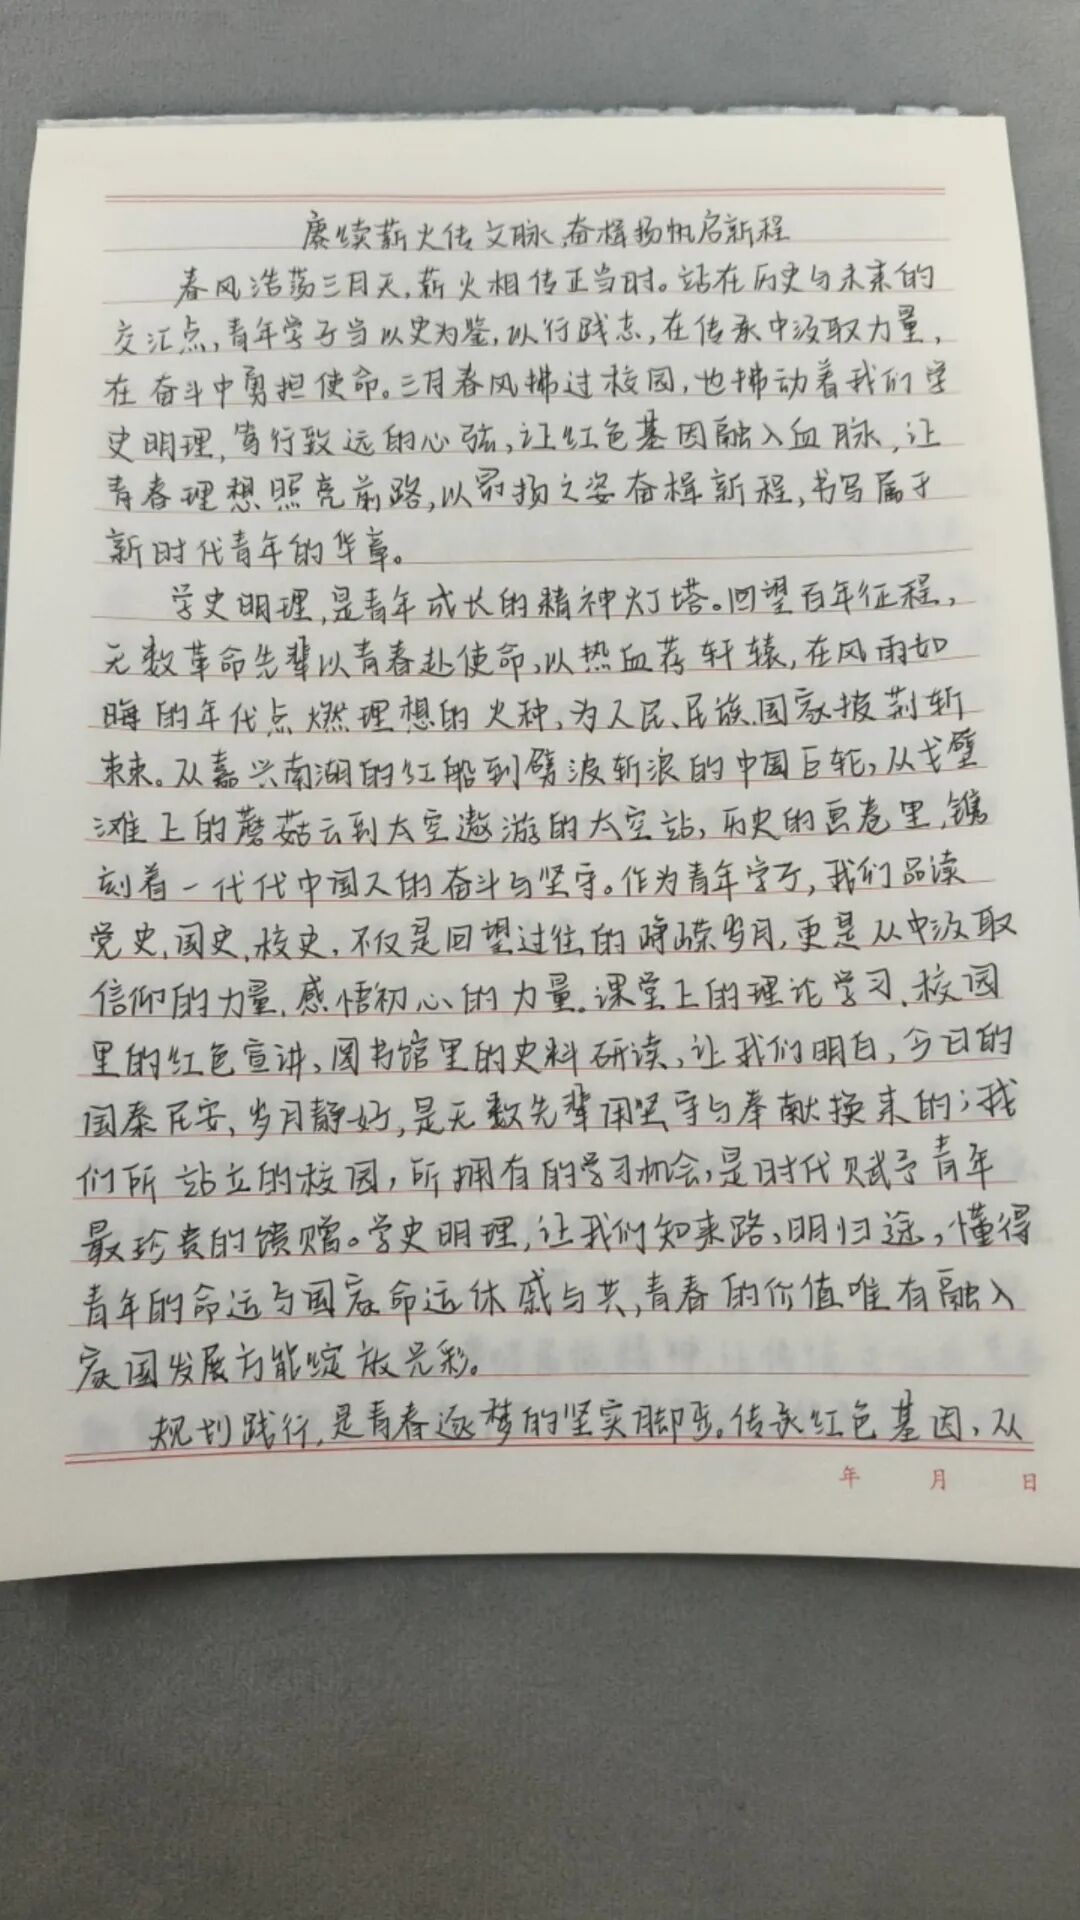 赓续薪火传文脉,奋楫扬帆启新程
春风浩荡三月天,薪火相传正当时。站在历史与未来的
交汇点,青年学子当以史为鉴,以行践志,在传承中汲取力量,
在奋斗中勇担使命。三月春风拂过校园,也拂动着我们学
史明理,笃行致远的心弦,让红色基因融入血脉,让
青春理想照亮前路,以昂扬之姿奋楫新程,书写属于
新时代青年的华章。
学史明理,是青年成长的精神灯塔。回望百年征程,
无数革命先辈以青春赴使命,以热血荐轩辕,在风雨如
晦的年代点燃理想的火种,为人民、民族、国家披荆斩
棘。从嘉兴南湖的红船到劈波斩浪的中国巨轮,从戈壁
滩上的蘑菇云到太空遨游的太空站,历史的画卷里,镌
刻着一代代中国人的奋斗与坚守。作为青年学子,我们品读
党史,国史,校史,不仅是回望过往的峥嵘岁月,更是从中汲取
信仰的力量,感悟初心的力量。课堂上的理论学习、校园
里的红色宣讲、图书馆里的史料研读,让我们明白,今日的
国泰民安、岁月静好,是无数先辈用坚守与奉献换来的;我
们所站立的校园,所拥有的学习机会,是时代赋予青年
最珍贵的馈赠。学史明理,让我们知来路,明归途,懂得
青年的命运与国家命运休戚与共,青春的价值唯有融入
家国发展方能绽放光彩。
规划践行,是青春逐梦的坚实脚步。传承红色基因,从
年 月 日